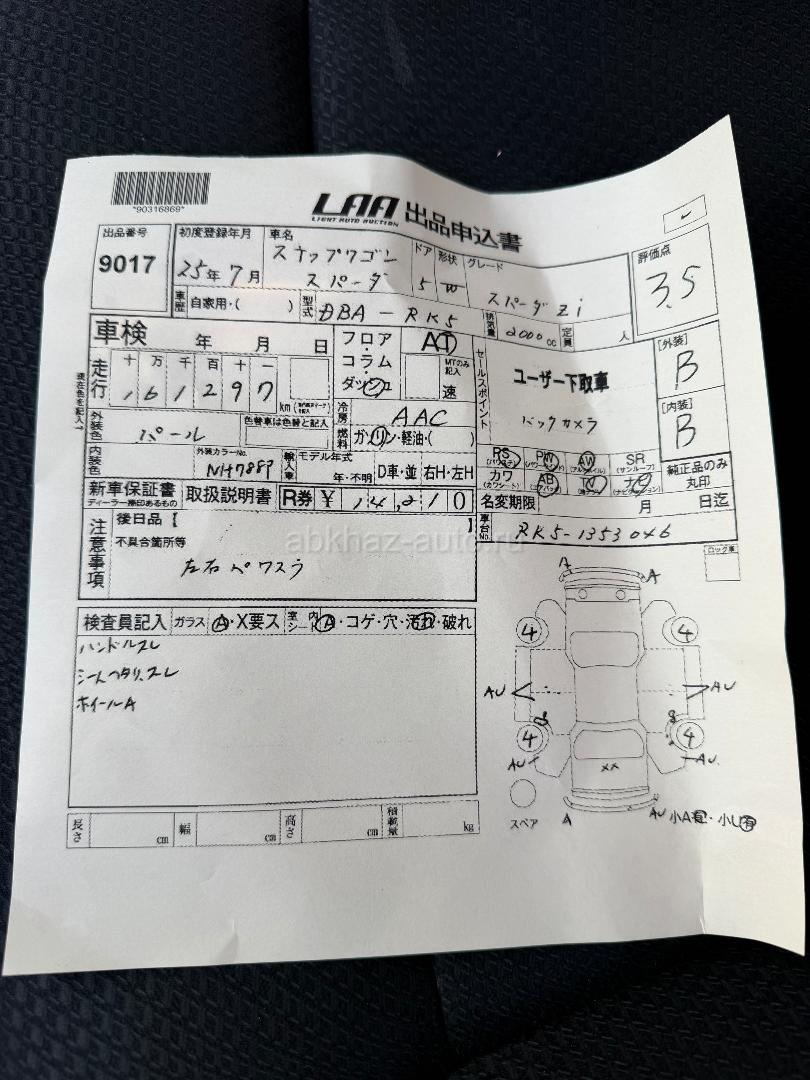 *90316869*
LAA 出品申込書
LIGHT AUTO AUCTION
出品番号
9017
初度登録年月
25年7月
車名
ステップワゴン
スパーダ
ドア
5
形状
W
グレード
スパーダZi
評価点
3.5
車歴 自家用・( )
型式 DBA-RK5
排気量 2000cc 定員 人
車検 年 月 日
フロア・コラム・ダッシュ
AT
MTのみ記入
速
セールスポイント
ユーザー下取車
バックカメラ
[外装]
B
[内装]
B
現在色を記入→
走行
十 万 千 百 十 一
161297
km
冷房 AAC
燃料 ガソリン・軽油・( )
外装色 パール
色替車は色替と記入
内装色
外装カラーNo.
NH788P
輸入車 モデル年式
年・不明
D車・並 右H・左H
RS (パワステ) PW (パワーウィンド) AW (アルミホイル) SR (サンルーフ)
カワ (カワシート) AB (エアバック) TV ナビ (ナビゲーション)
純正品のみ丸印
新車保証書
ディーラー捺印あるもの
取扱説明書
R券 ¥ 14,210
名変期限 月 日迄
車台No. RK5-1353046
ロック車
注意事項
後日品【 】
不具合箇所等
左右パワスラ
検査員記入 ガラス A・X要ス 室内シート A・コゲ・穴・汚れ・破れ
ハンドルスレ
シートヘタリ、スレ
ホイールA
A A
4 4
AU AU
4 4
AU AU.
XX
スペア
A AU 小A有・小U有
長さ cm 幅 cm 高さ cm 積載量 kg
abkhaz-auto.ru